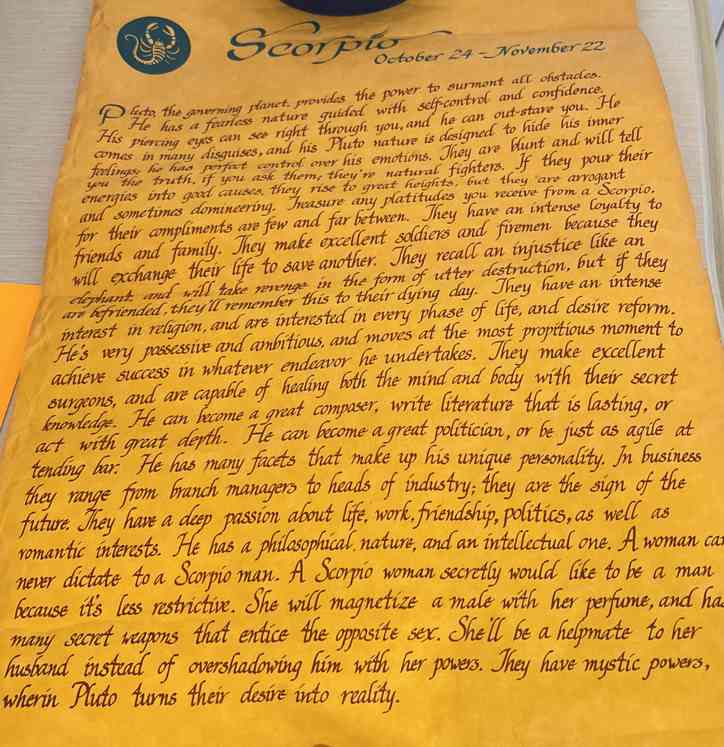 Scorpio
October 24 - November 22
Pluto, the governing planet, provides the power to surmont all obstacles.
He has a fearless nature guided with self-control and confidence.
His piercing eyes can see right through you, and he can out-stare you. He
comes in many disguises, and his Pluto nature is designed to hide his inner
feelings; he has perfect control over his emotions. They are blunt and will tell
you the truth, if you ask them; they're natural fighters. If they pour their
energies into good causes, they rise to great heights, but they are arrogant
and sometimes domineering. Treasure any platitudes you receive from a Scorpio,
for their compliments are few and far between. They have an intense loyalty to
friends and family. They make excellent soldiers and firemen because they
will exchange their life to save another. They recall an injustice like an
elephant, and will take revenge in the form of utter destruction, but if they
are befriended, they'll remember this to their dying day. They have an intense
interest in religion, and are interested in every phase of life, and desire reform.
He's very possessive and ambitious, and moves at the most propitious moment to
achieve success in whatever endeavor he undertakes. They make excellent
surgeons, and are capable of healing both the mind and body with their secret
knowledge. He can become a great composer, write literature that is lasting, or
act with great depth. He can become a great politician, or be just as agile at
tending bar. He has many facets that make up his unique personality. In business
they range from branch managers to heads of industry; they are the sign of the
future. They have a deep passion about life, work, friendship, politics, as well as
romantic interests. He has a philosophical nature, and an intellectual one. A woman can
never dictate to a Scorpio man. A Scorpio woman secretly would like to be a man
because it's less restrictive. She will magnetize a male with her perfume, and has
many secret weapons that entice the opposite sex. She'll be a helpmate to her
husband instead of overshadowing him with her powers. They have mystic powers,
wherin Pluto turns their desire into reality.